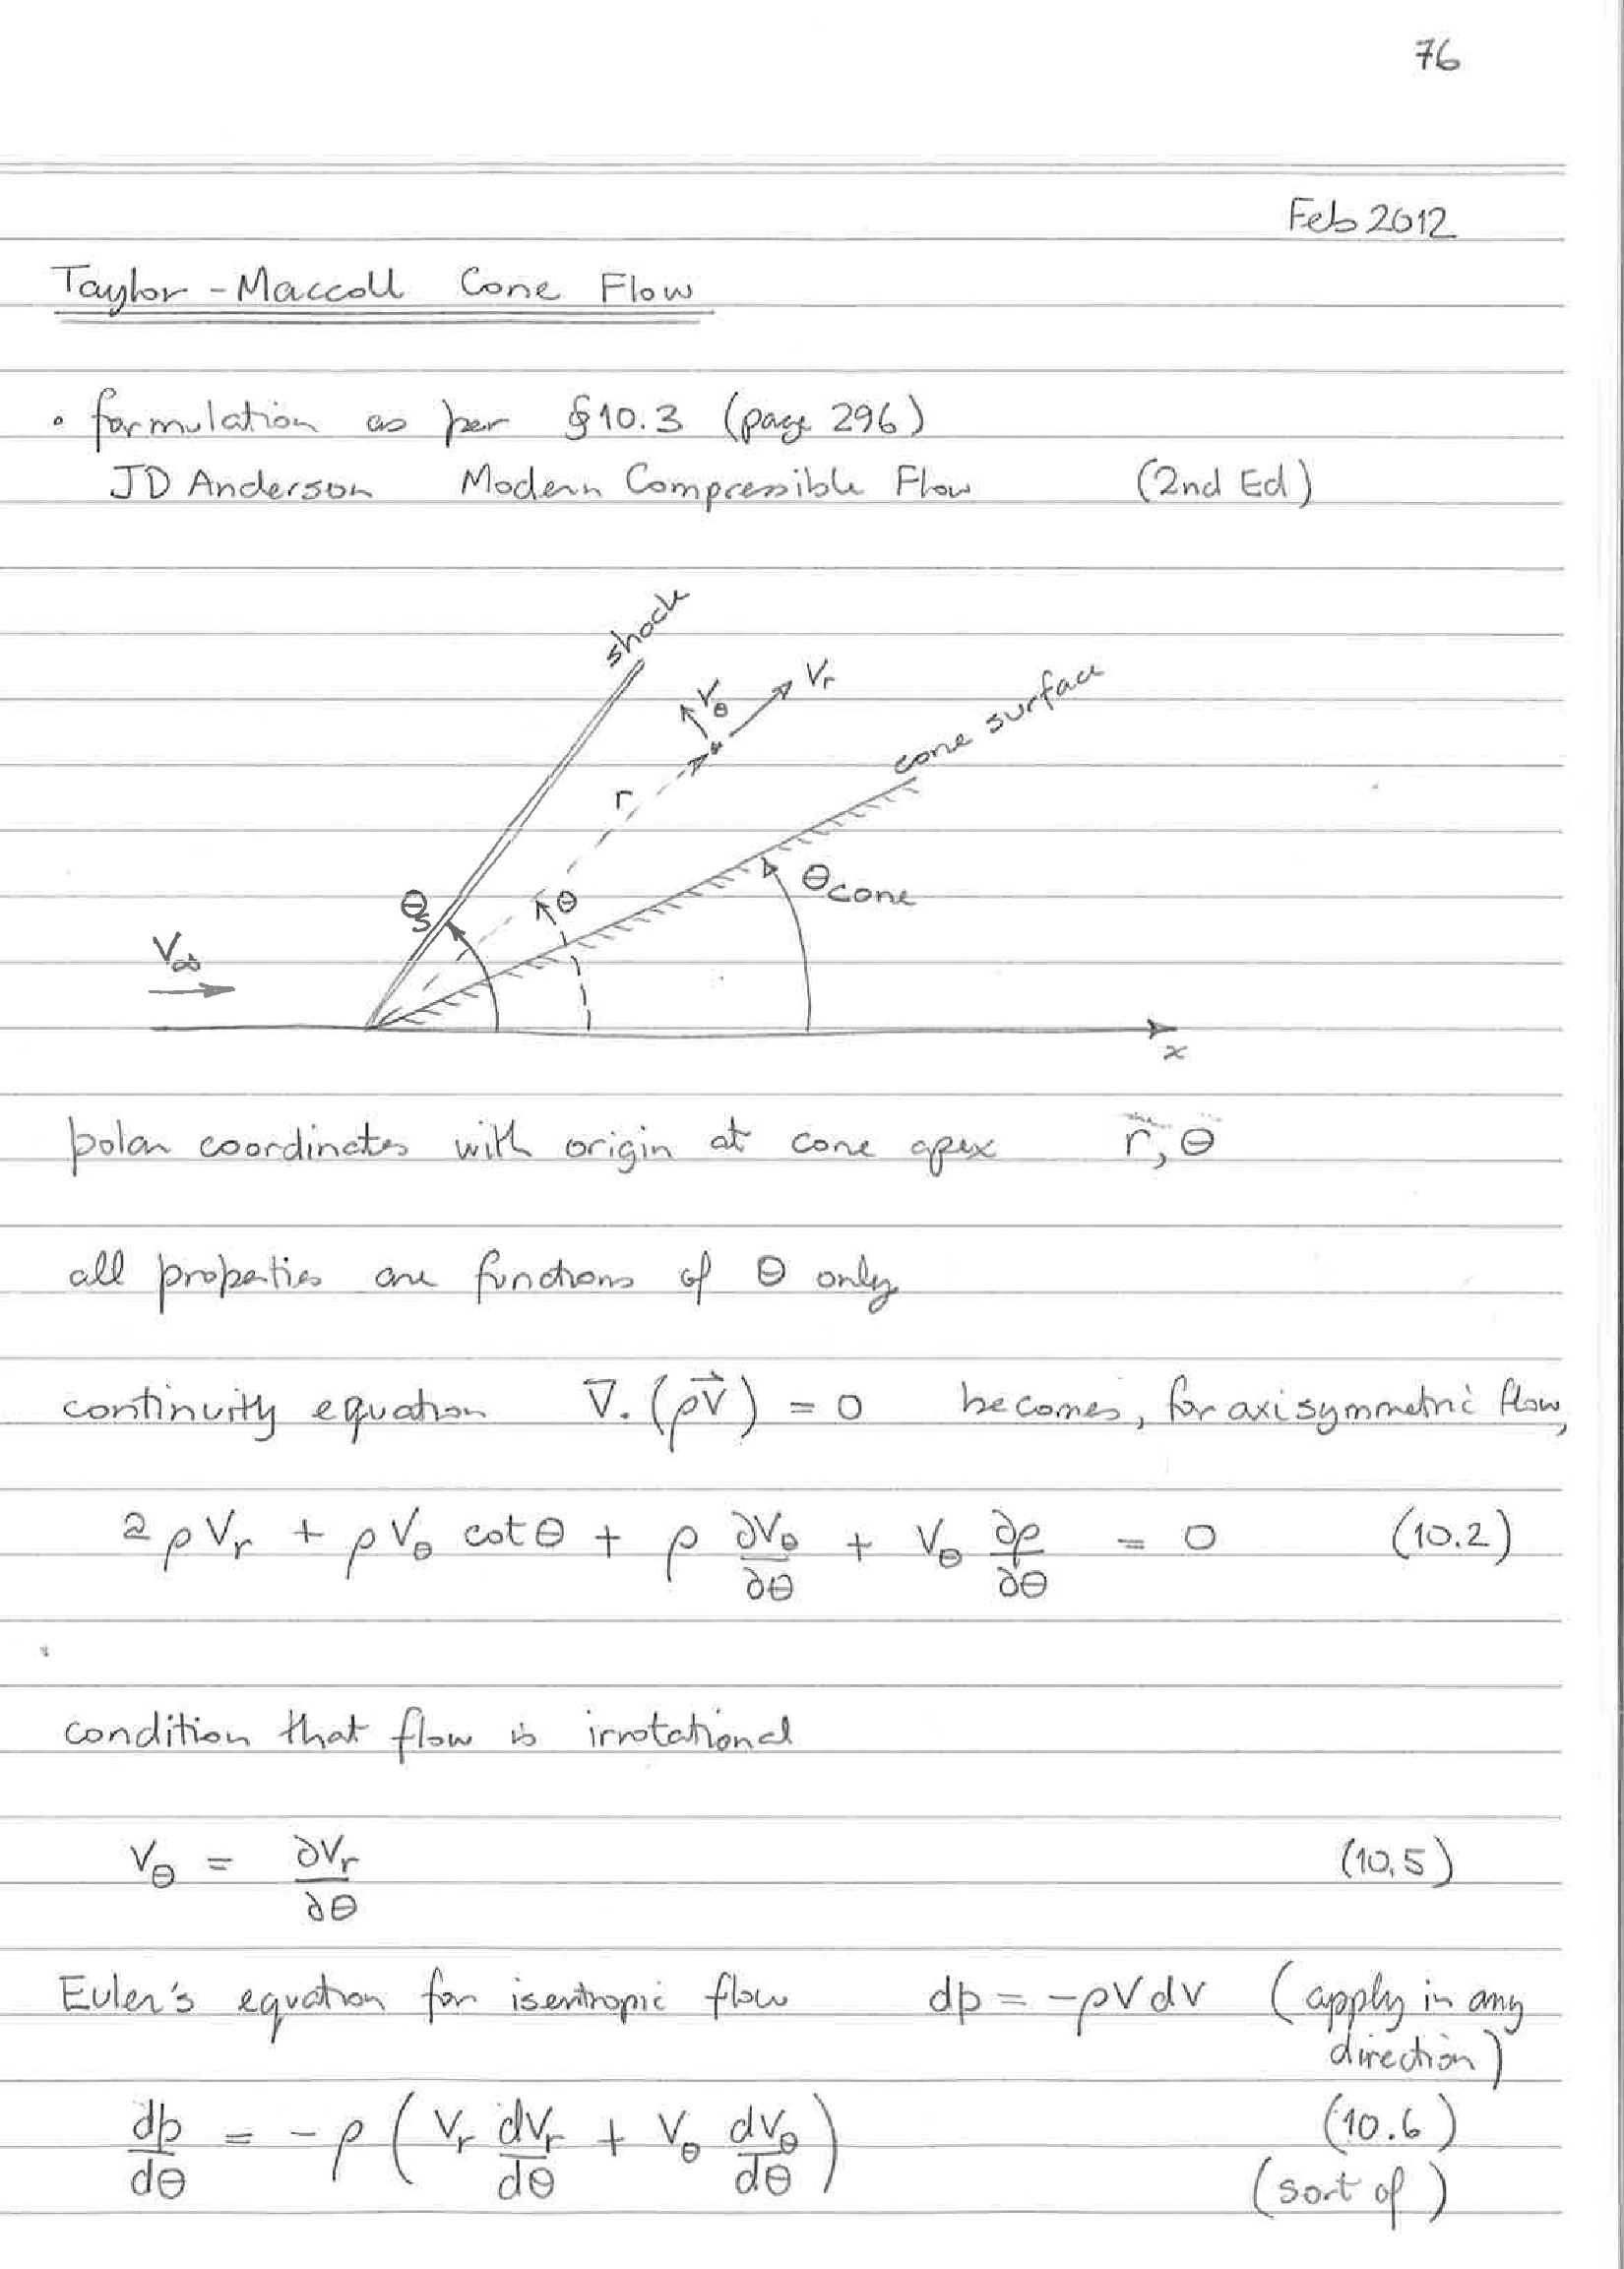 76
Feb 2012
Taylor-Maccoll Cone Flow
• formulation as per §10.3 (page 296)
JD Anderson Modern Compressible Flow (2nd Ed)
shock
V_θ V_r
cone surface
r
θ_s θ θ_cone
V_∞
x
polar coordinates with origin at cone apex r, θ
all properties are functions of θ only
continuity equation ∇.(ρV⃗) = 0 becomes, for axisymmetric flow,
2ρV_r + ρV_θ cotθ + ρ ∂V_θ/∂θ + V_θ ∂ρ/∂θ = 0 (10.2)
condition that flow is irrotational
V_θ = ∂V_r/∂θ (10.5)
Euler's equation for isentropic flow dp = -ρVdV (apply in any
direction)
dp/dθ = -ρ (V_r dV_r/dθ + V_θ dV_θ/dθ) (10.6)
(sort of)